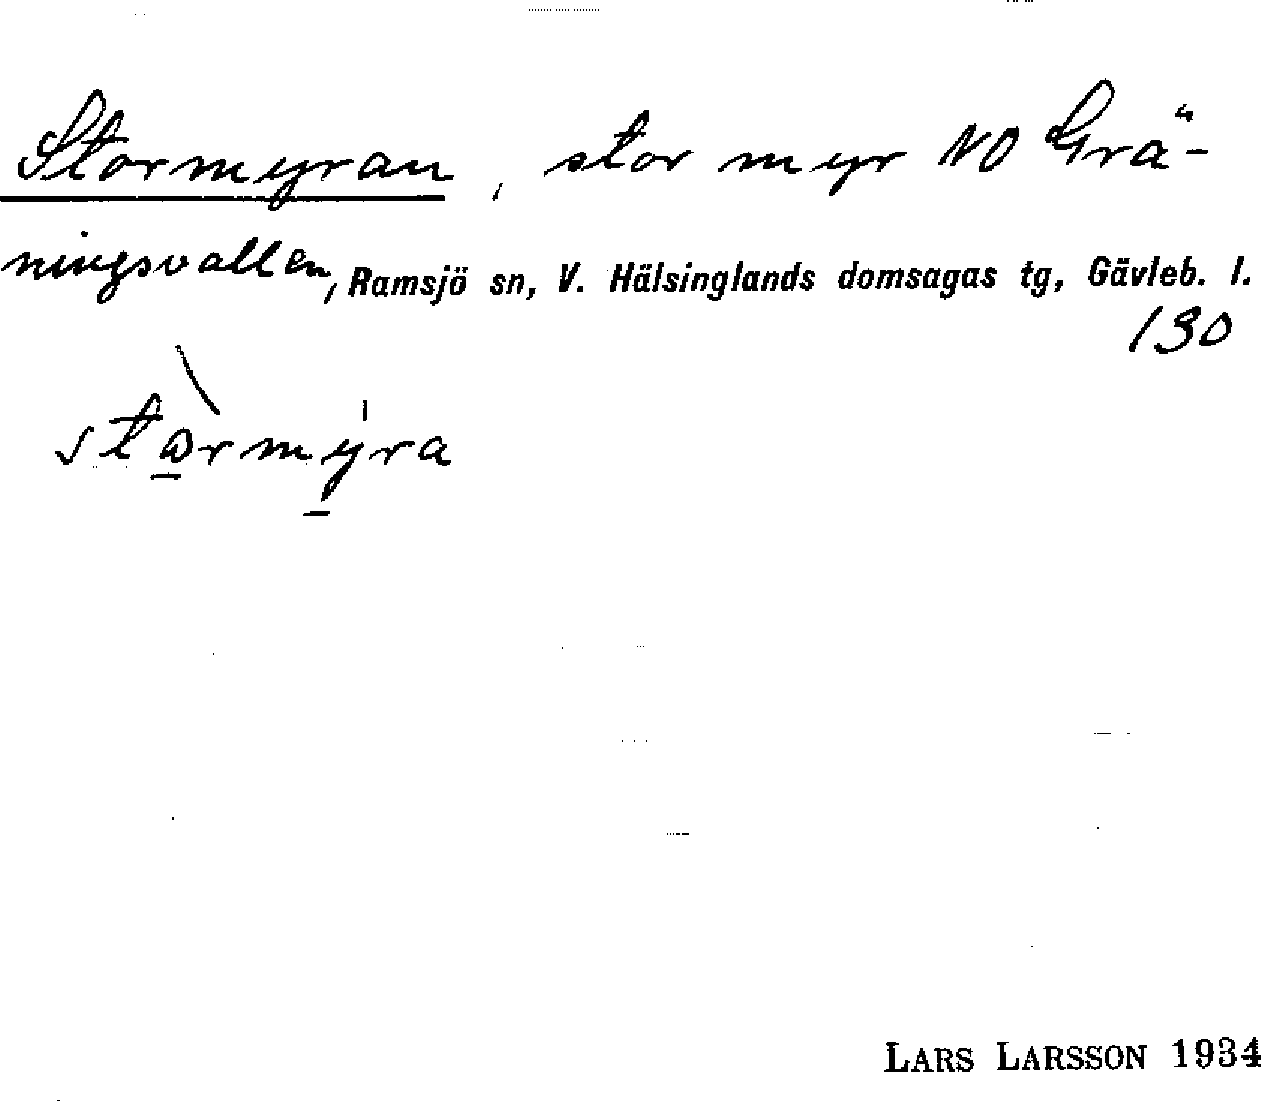 Stormyran, stor myr NO Grä-
ningsvallen, Ramsjö sn, V. Hälsinglands domsagas tg, Gävleb. l.
130
stòrmýra
LARS LARSSON 1934